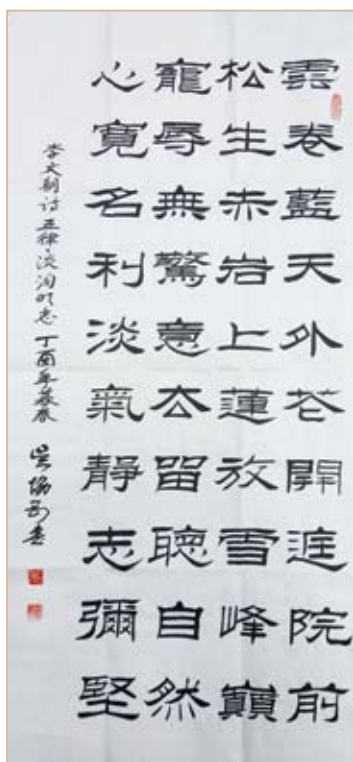 雲卷藍天外花開庭院前
松生赤岩上蓮放雪峰巔
寵辱無驚意去留聽自然
心寬名利淡氣靜志彌堅
李文朝诗 五律·淡泊明志 丁酉年暮春